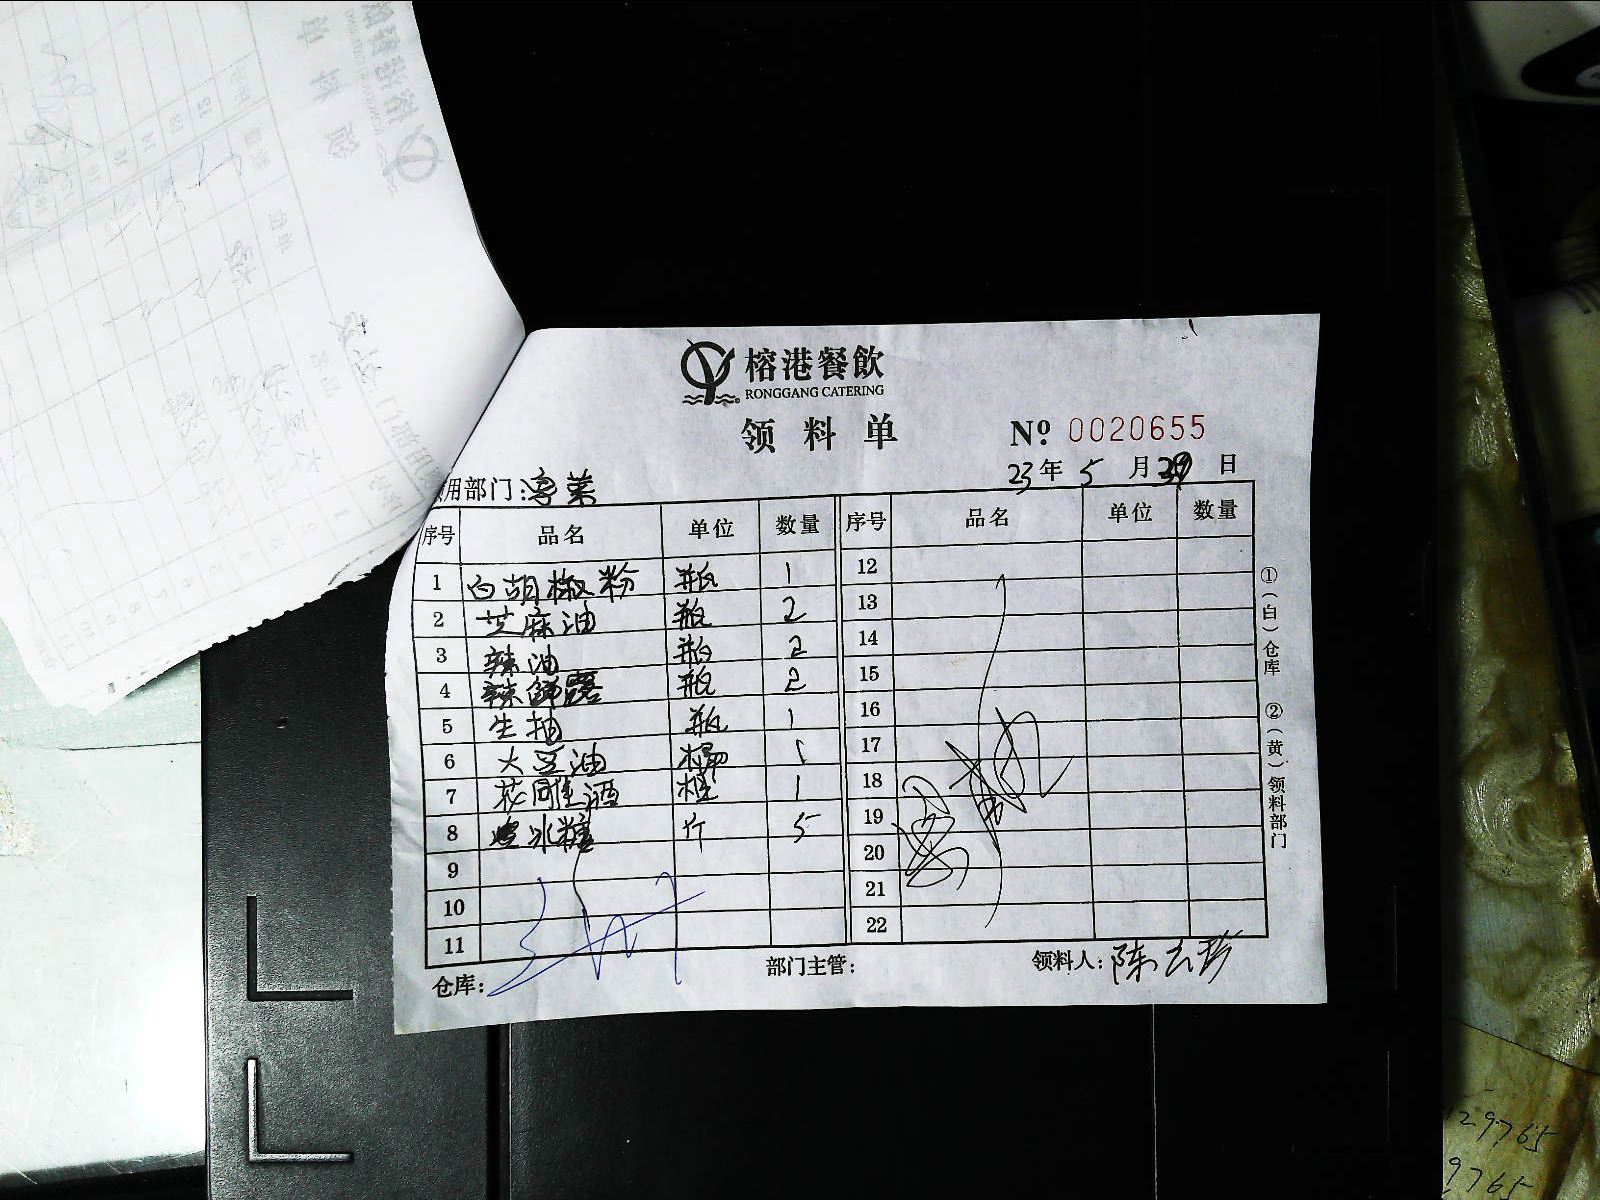 榕港餐飲
RONGGANG CATERING
领料单
Nº 0020655
23年 5月29日
用部门：
序号 品名 单位 数量 序号 品名 单位 数量
1 白胡椒粉 瓶 1 12
2 芝麻油 瓶 2 13
3 辣油 瓶 2 14
4 辣鲜露 瓶 2 15
5 生抽 瓶 1 16
6 大豆油 桶 1 17
7 花雕酒 1 18
8 冰糖 斤 5 19
9 20
10 21
11 22
仓库： 部门主管： 领料人：陈云珍
①（白）仓库 ②（黄）领料部门
29765
9765